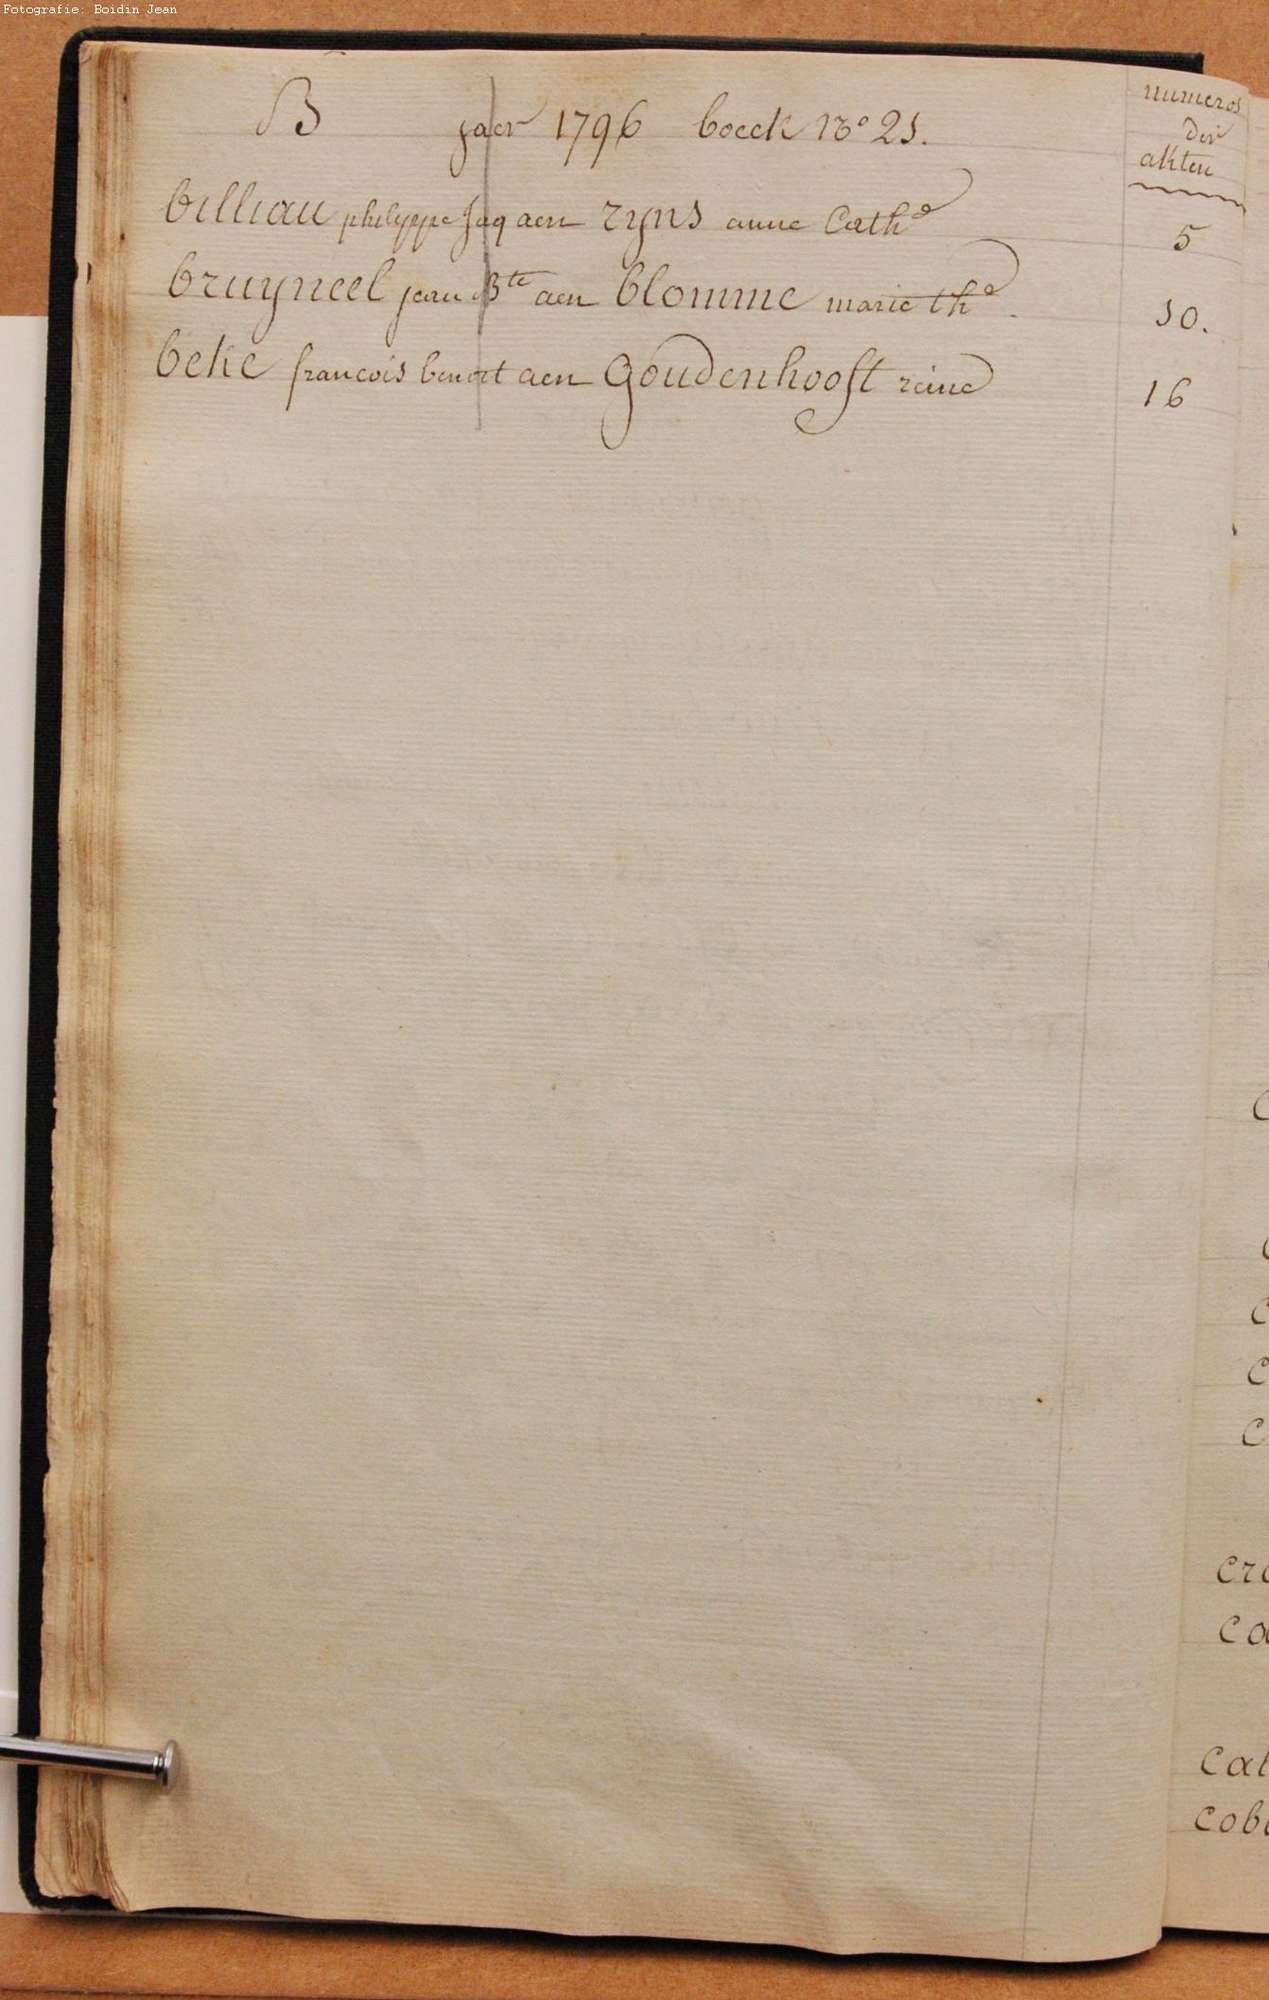 Fotografie: Boidin Jean
B jaer 1796 boeck No 21.
numeros
der
akten
billiau philippe Jaq aen ryns anne Cathe 5
bruyneel jean Bte aen blomme marie the. 10.
beke francois benoit aen Goudenhooft reine 16
C
C
C
C
C
cra
ca
cal
cob